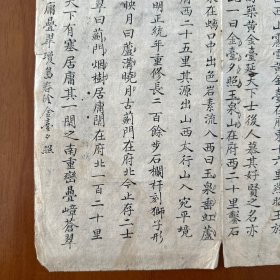 築黃金臺延天下士後人慕其好賢之名亦
一曰金臺夕照玉泉山在府西二十里鑿石
泉在螭口中出色岩素流入西曰玉泉垂虹蘆
府西二十五里其源出山西太行山入宛平境
明正統年重修長二百餘步石欄杆刻獅子形
映月曰蘆溝曉月古薊門在府北今止存二土
翠曰薊門烟樹居庸関在府北一百二十里
天下有塞居庸其一関之南重巒疊嶂蒼翠
庸疊翠瓊島春陰金臺夕照